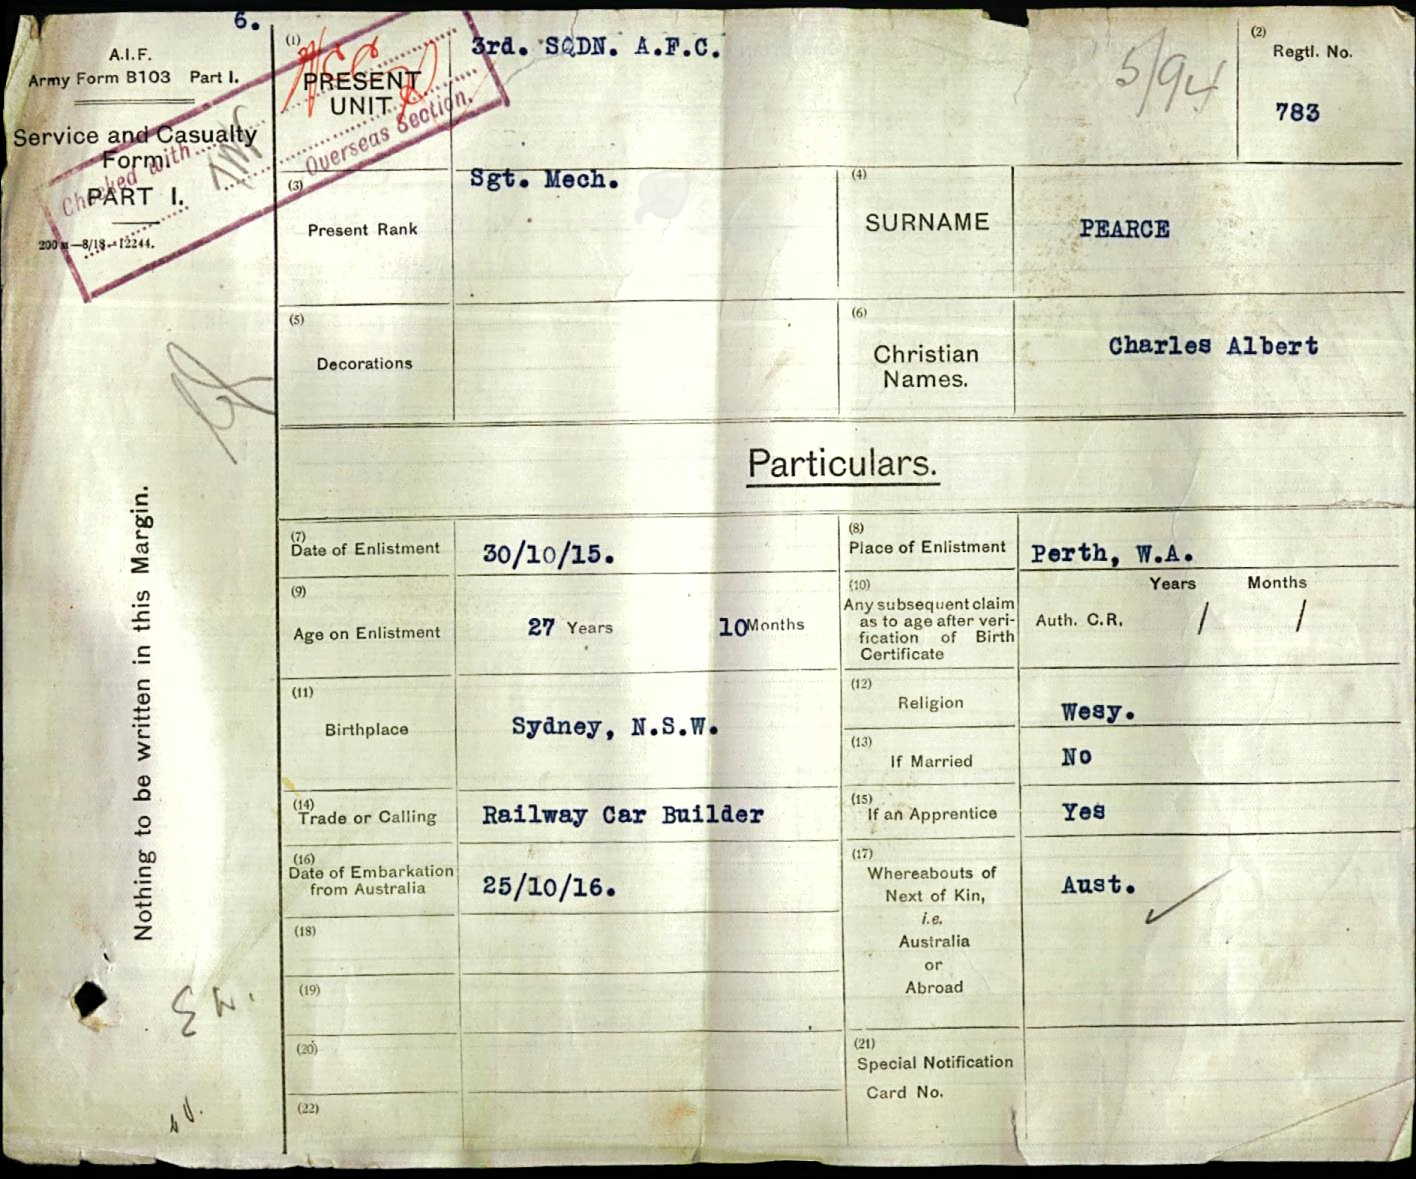 6.
A.I.F.
Army Form B103 Part I.
Service and Casualty
Form
PART I.
200 m—8/18—12244.
Checked with
Overseas Section.
(1)
PRESENT
UNIT
3rd. SQDN. A.F.C.
5/94
(2)
Regtl. No.
783
(3)
Present Rank
Sgt. Mech.
(4)
SURNAME
PEARCE
(5)
Decorations
(6)
Christian
Names.
Charles Albert
Nothing to be written in this Margin.
Particulars.
(7)
Date of Enlistment
30/10/15.
(8)
Place of Enlistment
Perth, W.A.
(9)
Age on Enlistment
27 Years 10 Months
(10)
Any subsequent claim
as to age after veri-
fication of Birth
Certificate
Years Months
Auth. C.R. / /
(11)
Birthplace
Sydney, N.S.W.
(12)
Religion
Wesy.
(13)
If Married
No
(14)
Trade or Calling
Railway Car Builder
(15)
If an Apprentice
Yes
(16)
Date of Embarkation
from Australia
25/10/16.
(17)
Whereabouts of
Next of Kin,
i.e.
Australia
or
Abroad
Aust.
(18)
(19)
(20)
(21)
Special Notification
Card No.
(22)